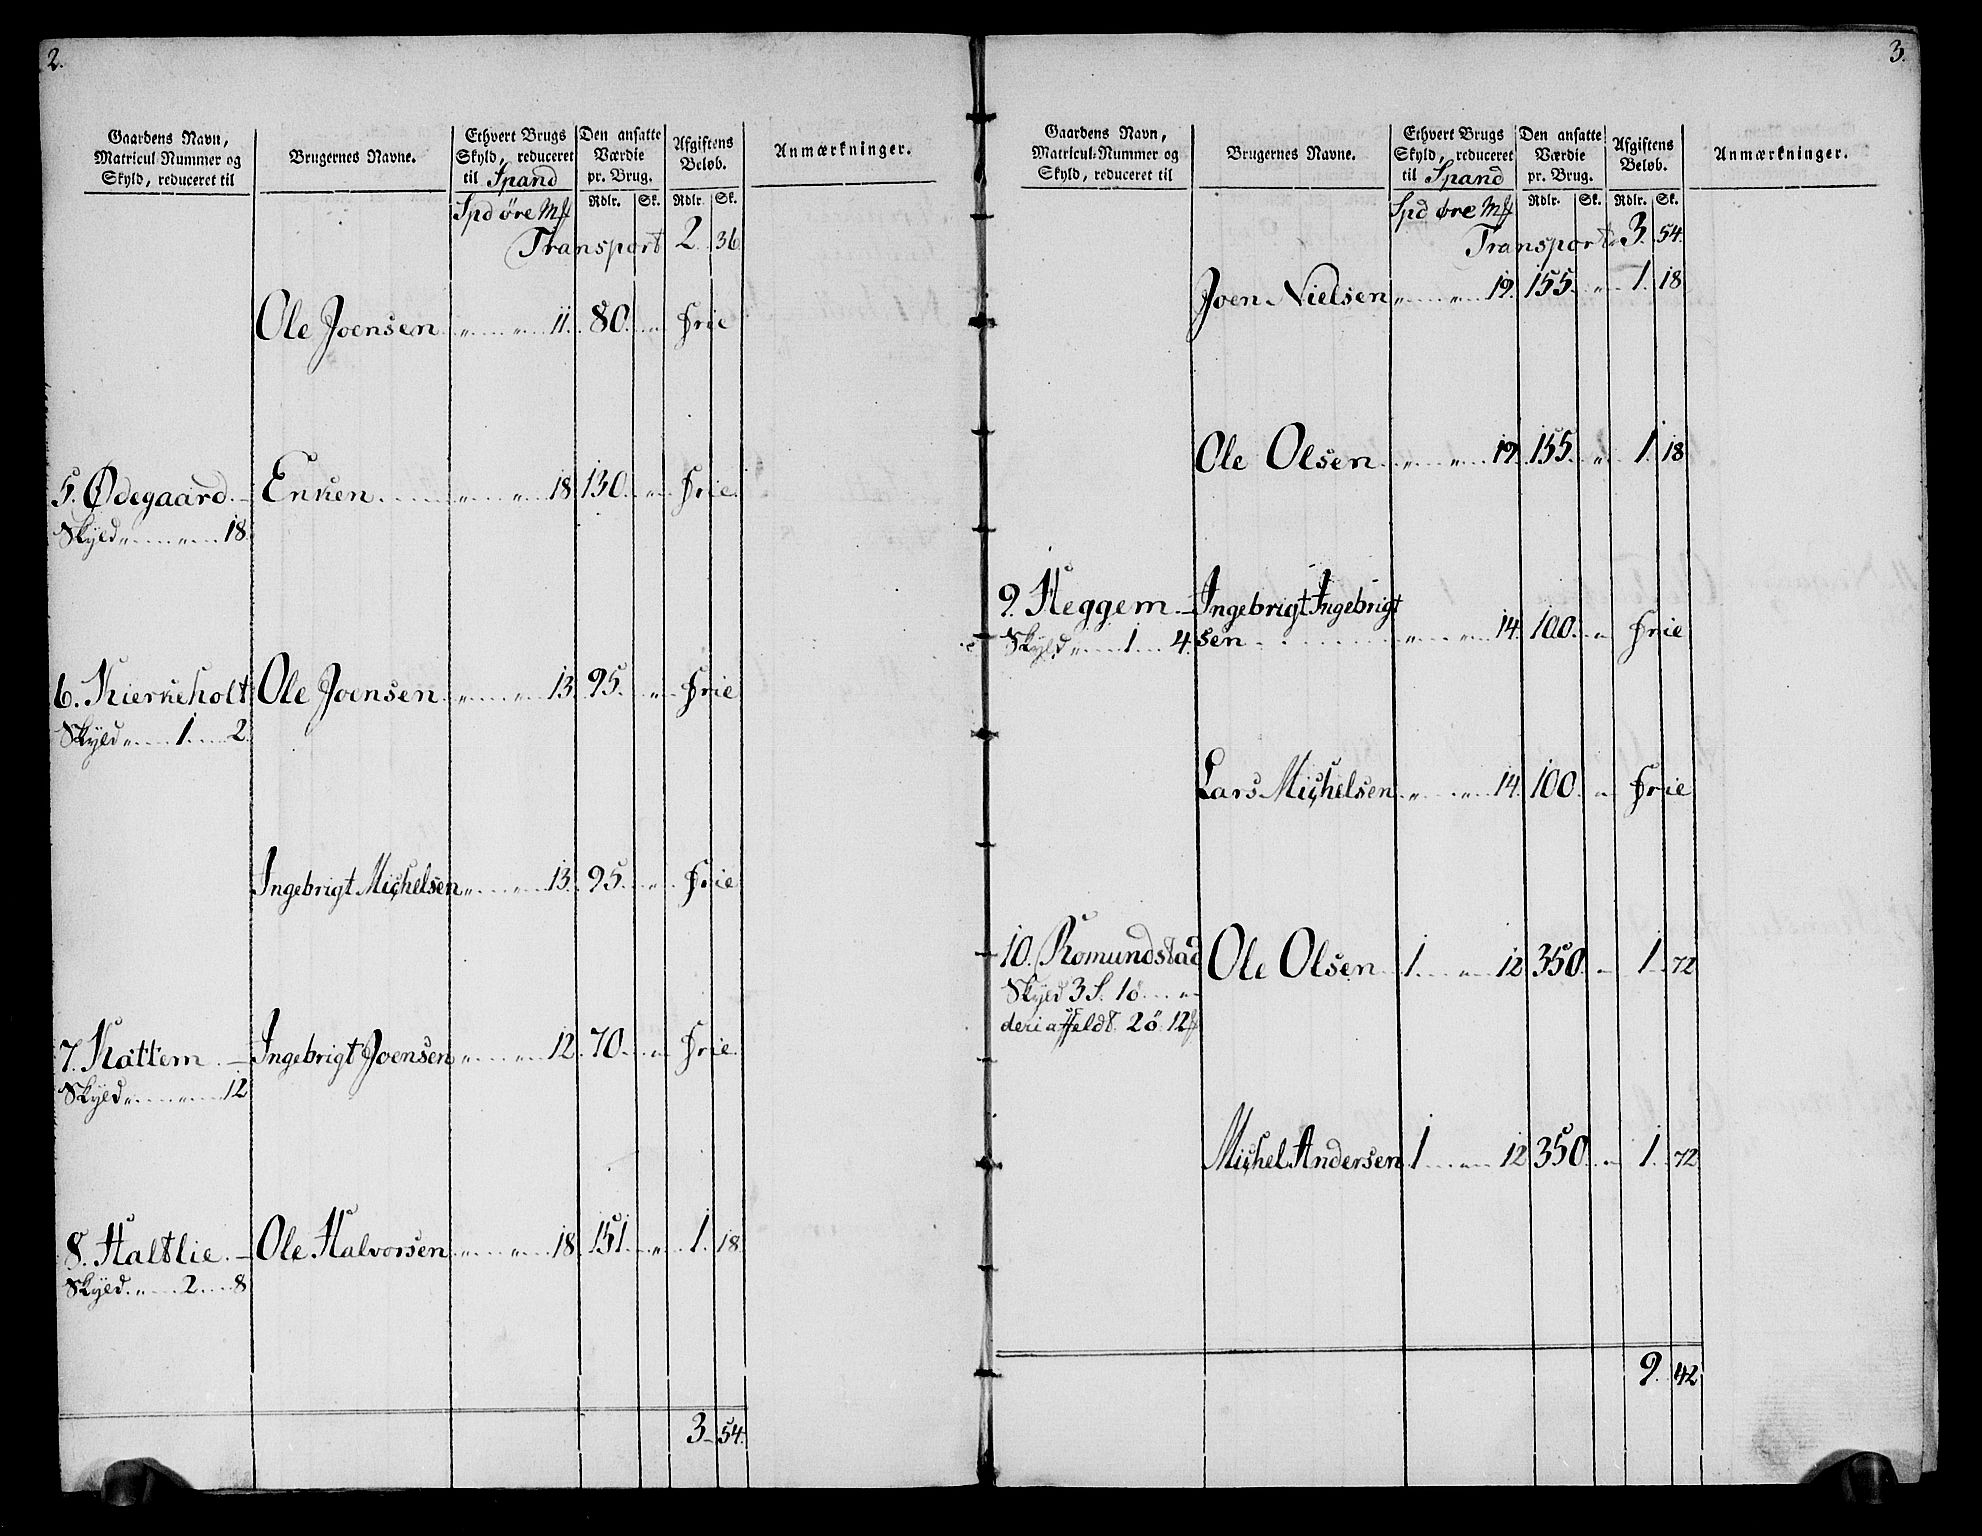 2.
Gaardens Navn, Matricul-Nummer og Skyld, reduceret til
Brugernes Navne.
Ethvert Brugs Skyld, reduceret til Spand
Den ansatte Værdie pr. Brug.
Afgiftens Beløb.
Anmærkninger.
Spd øre Mk
Rdlr. Sk. Rdlr. Sk.
Transport 2. 36
Ole Joensen „ „ 11. 80. „ Frie
5. Ødegaard. — Enken „ „ 18 130. „ Frie
Skyld „ „ 18.
6. Kierkeholt Ole Joensen „ „ 13. 95. „ Frie
Skyld „ 1 2.
Ingebrigt Michelsen „ „ 13. 95. „ Frie
7. Kattem. — Ingebrigt Joensen „ „ 12 70. „ Frie
Skyld „ „ 12
8. Haltlie. — Ole Halvorsen „ „ 18. 151. „ 1. 18.
Skyld. „ 2 8
3. 54.
3.
Gaardens Navn, Matricul-Nummer og Skyld, reduceret til
Brugernes Navne.
Ethvert Brugs Skyld, reduceret til Spand
Den ansatte Værdie pr. Brug.
Afgiftens Beløb.
Anmærkninger.
Spd øre Mk
Rdlr. Sk. Rdlr. Sk.
Transport 3. 54.
Joen Nielsen „ „ 19. 155. „ 1. 18
Ole Olsen „ „ 19. 155. „ 1. 18
9. Heggem. — Ingebrigt Ingebrigt
Skyld „ 1 4. sen „ „ 14. 100. „ Frie
Lars Michelsen „ „ 14. 100. „ Frie
10. Romundstad Ole Olsen 1. „ 12 350. „ 1. 72
Skyld 3 S. 1ö „
deri affeldt. 2ö. 12
Michel Andersen 1 „ 12 350. „ 1. 72
9. 42